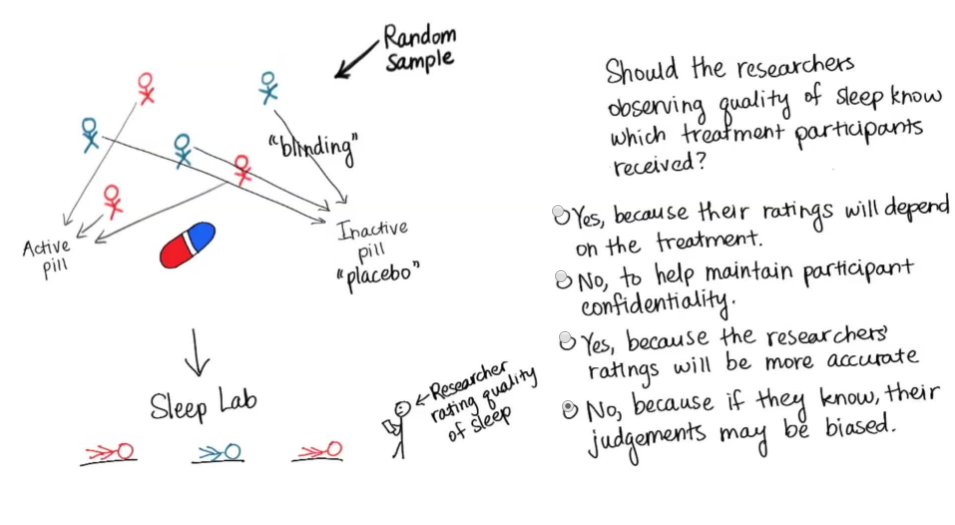 Random
Sample
"blinding"
Active
pill
Inactive
pill
"placebo"
Sleep Lab
Researcher
rating quality
of sleep
Should the researchers
observing quality of sleep know
which treatment participants
received?
Yes, because their ratings will depend
on the treatment.
No, to help maintain participant
confidentiality.
Yes, because the researchers'
ratings will be more accurate
No, because if they know, their
judgements may be biased.